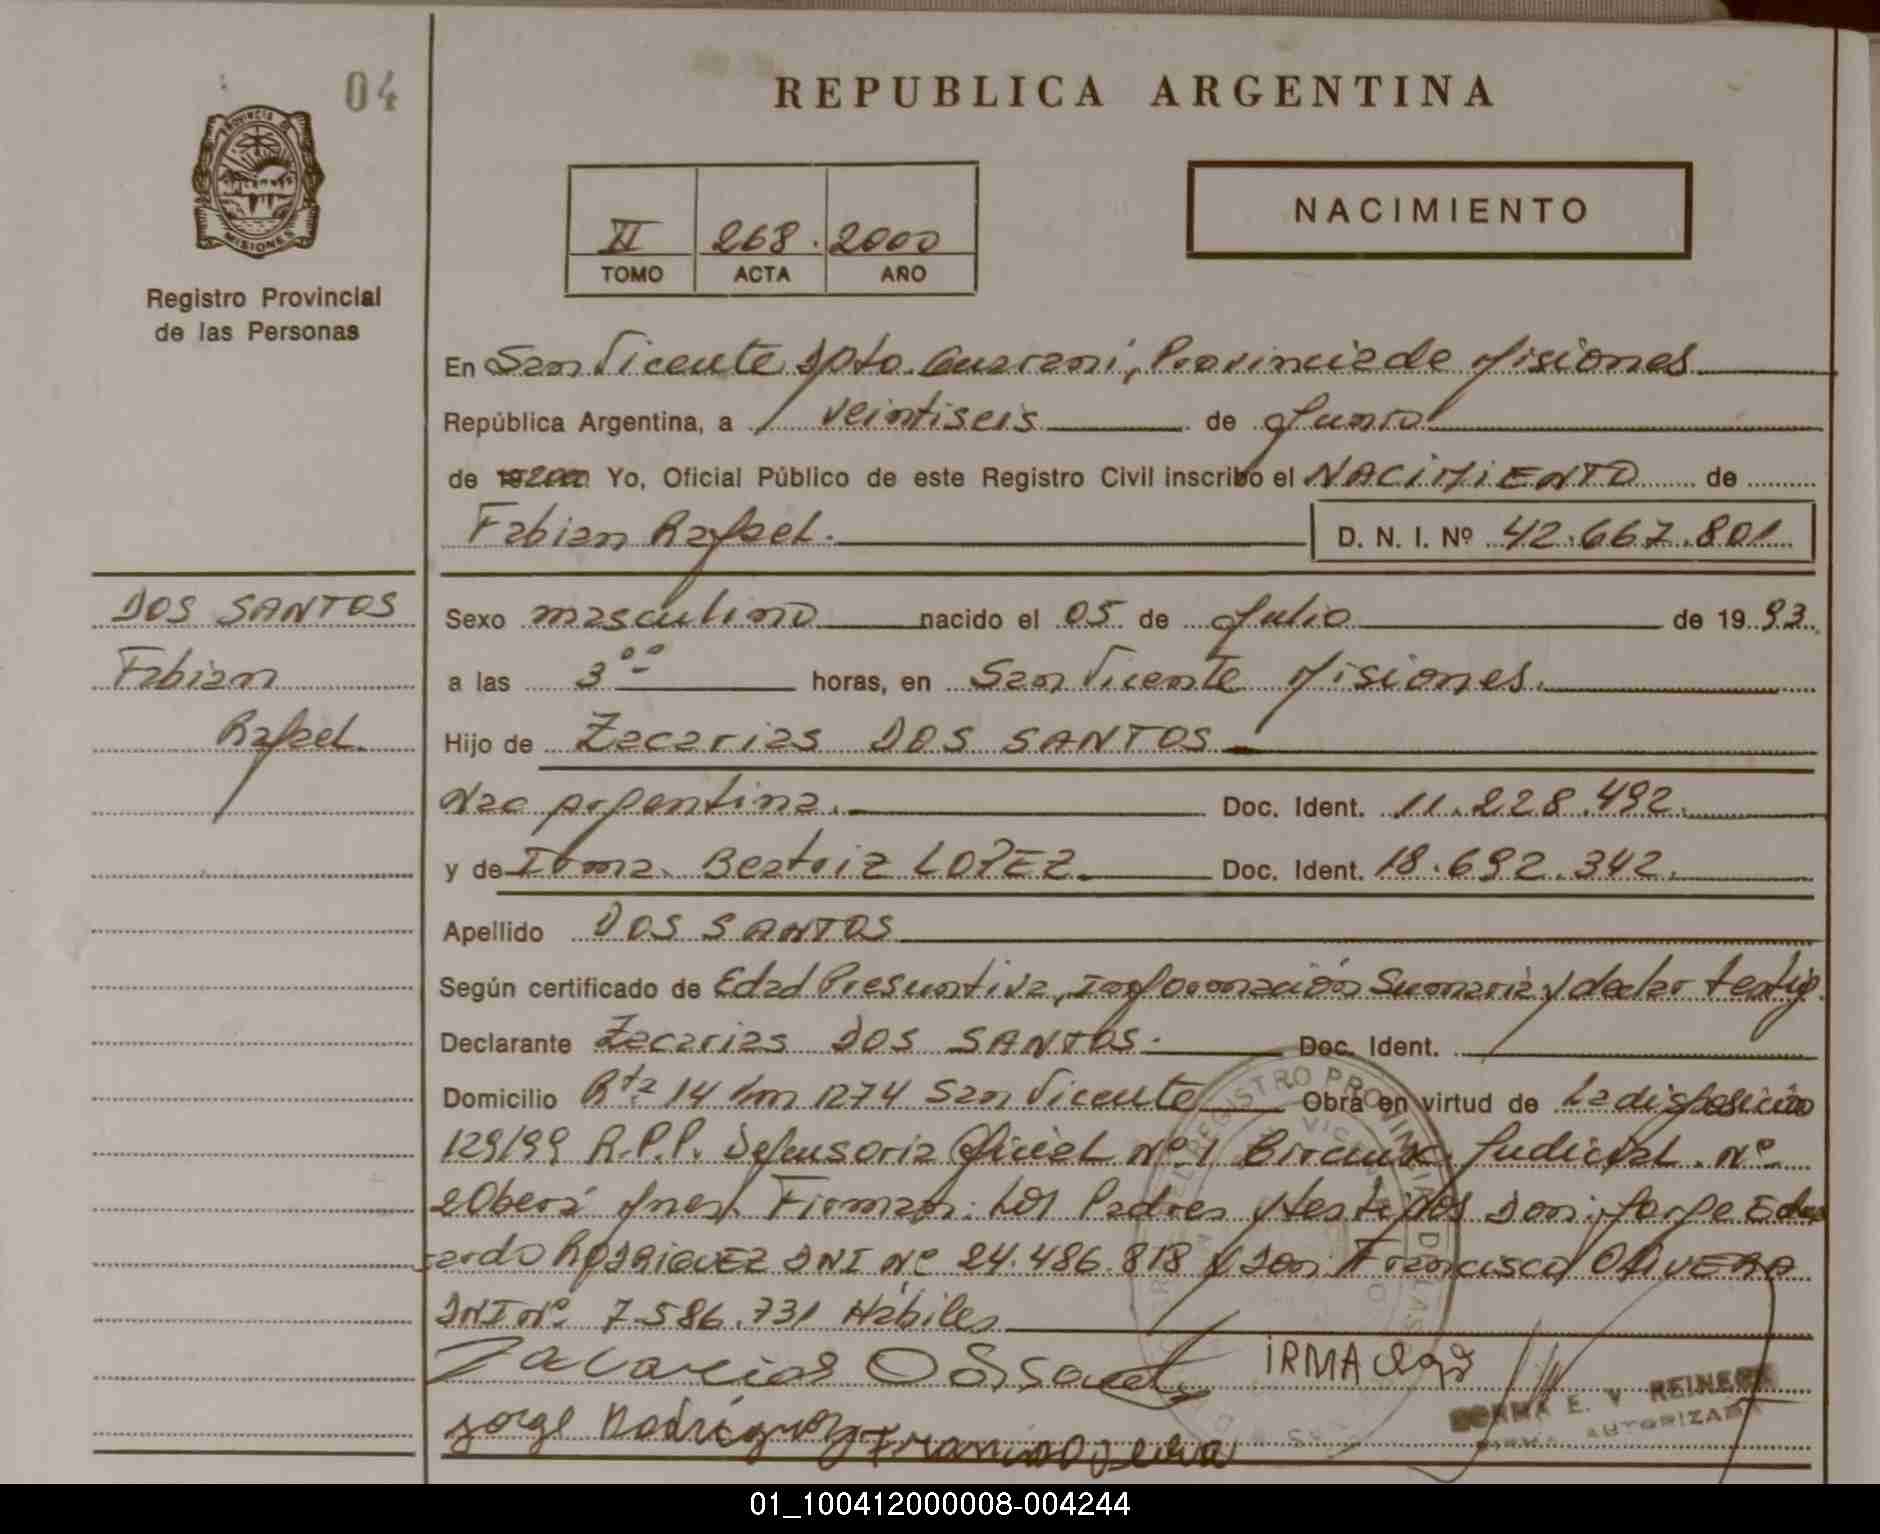 04
REPUBLICA ARGENTINA
PROVINCIA DE
MISIONES
Registro Provincial
de las Personas
II 268. 2000
TOMO ACTA AÑO
NACIMIENTO
En San Vicente Dpto. Guaraní, Provincia de Misiones
República Argentina, a veintiseis de Junio
de 2000 Yo, Oficial Público de este Registro Civil inscribo el NACIMIENTO de
Fabian Rafael.
D. N. I. Nº 42.667.801
DOS SANTOS
Fabian
Rafael.
Sexo masculino nacido el 05 de Julio de 1993.
a las 3 00 horas, en San Vicente Misiones.
Hijo de Zacarias DOS SANTOS
Nac argentina. Doc. Ident. 11.228.492.
y de Irma Beatriz LOPEZ. Doc. Ident. 18.692.342.
Apellido DOS SANTOS
Según certificado de Edad Presuntiva, Información Sumaria y declar testig.
Declarante Zacarias DOS SANTOS. Doc. Ident.
Domicilio Rta 14 km 1274 San Vicente Obra en virtud de La disposición
129/99 R.P.P. Defensoria Oficial Nº 1 Circunx. Judicial Nº
2 Oberá Mnes. Firman: Los Padres y testigos Don: Jorge Edu
ardo RODRIGUEZ DNI Nº 24.486.818 y Don Francisco OLIVERA
DNI Nº 7.586.731 Hábiles
Zacarias
IRMA
Jorge Rodriguez
NORMA E. V. REINERT
FIRMA AUTORIZADA
01_100412000008-004244